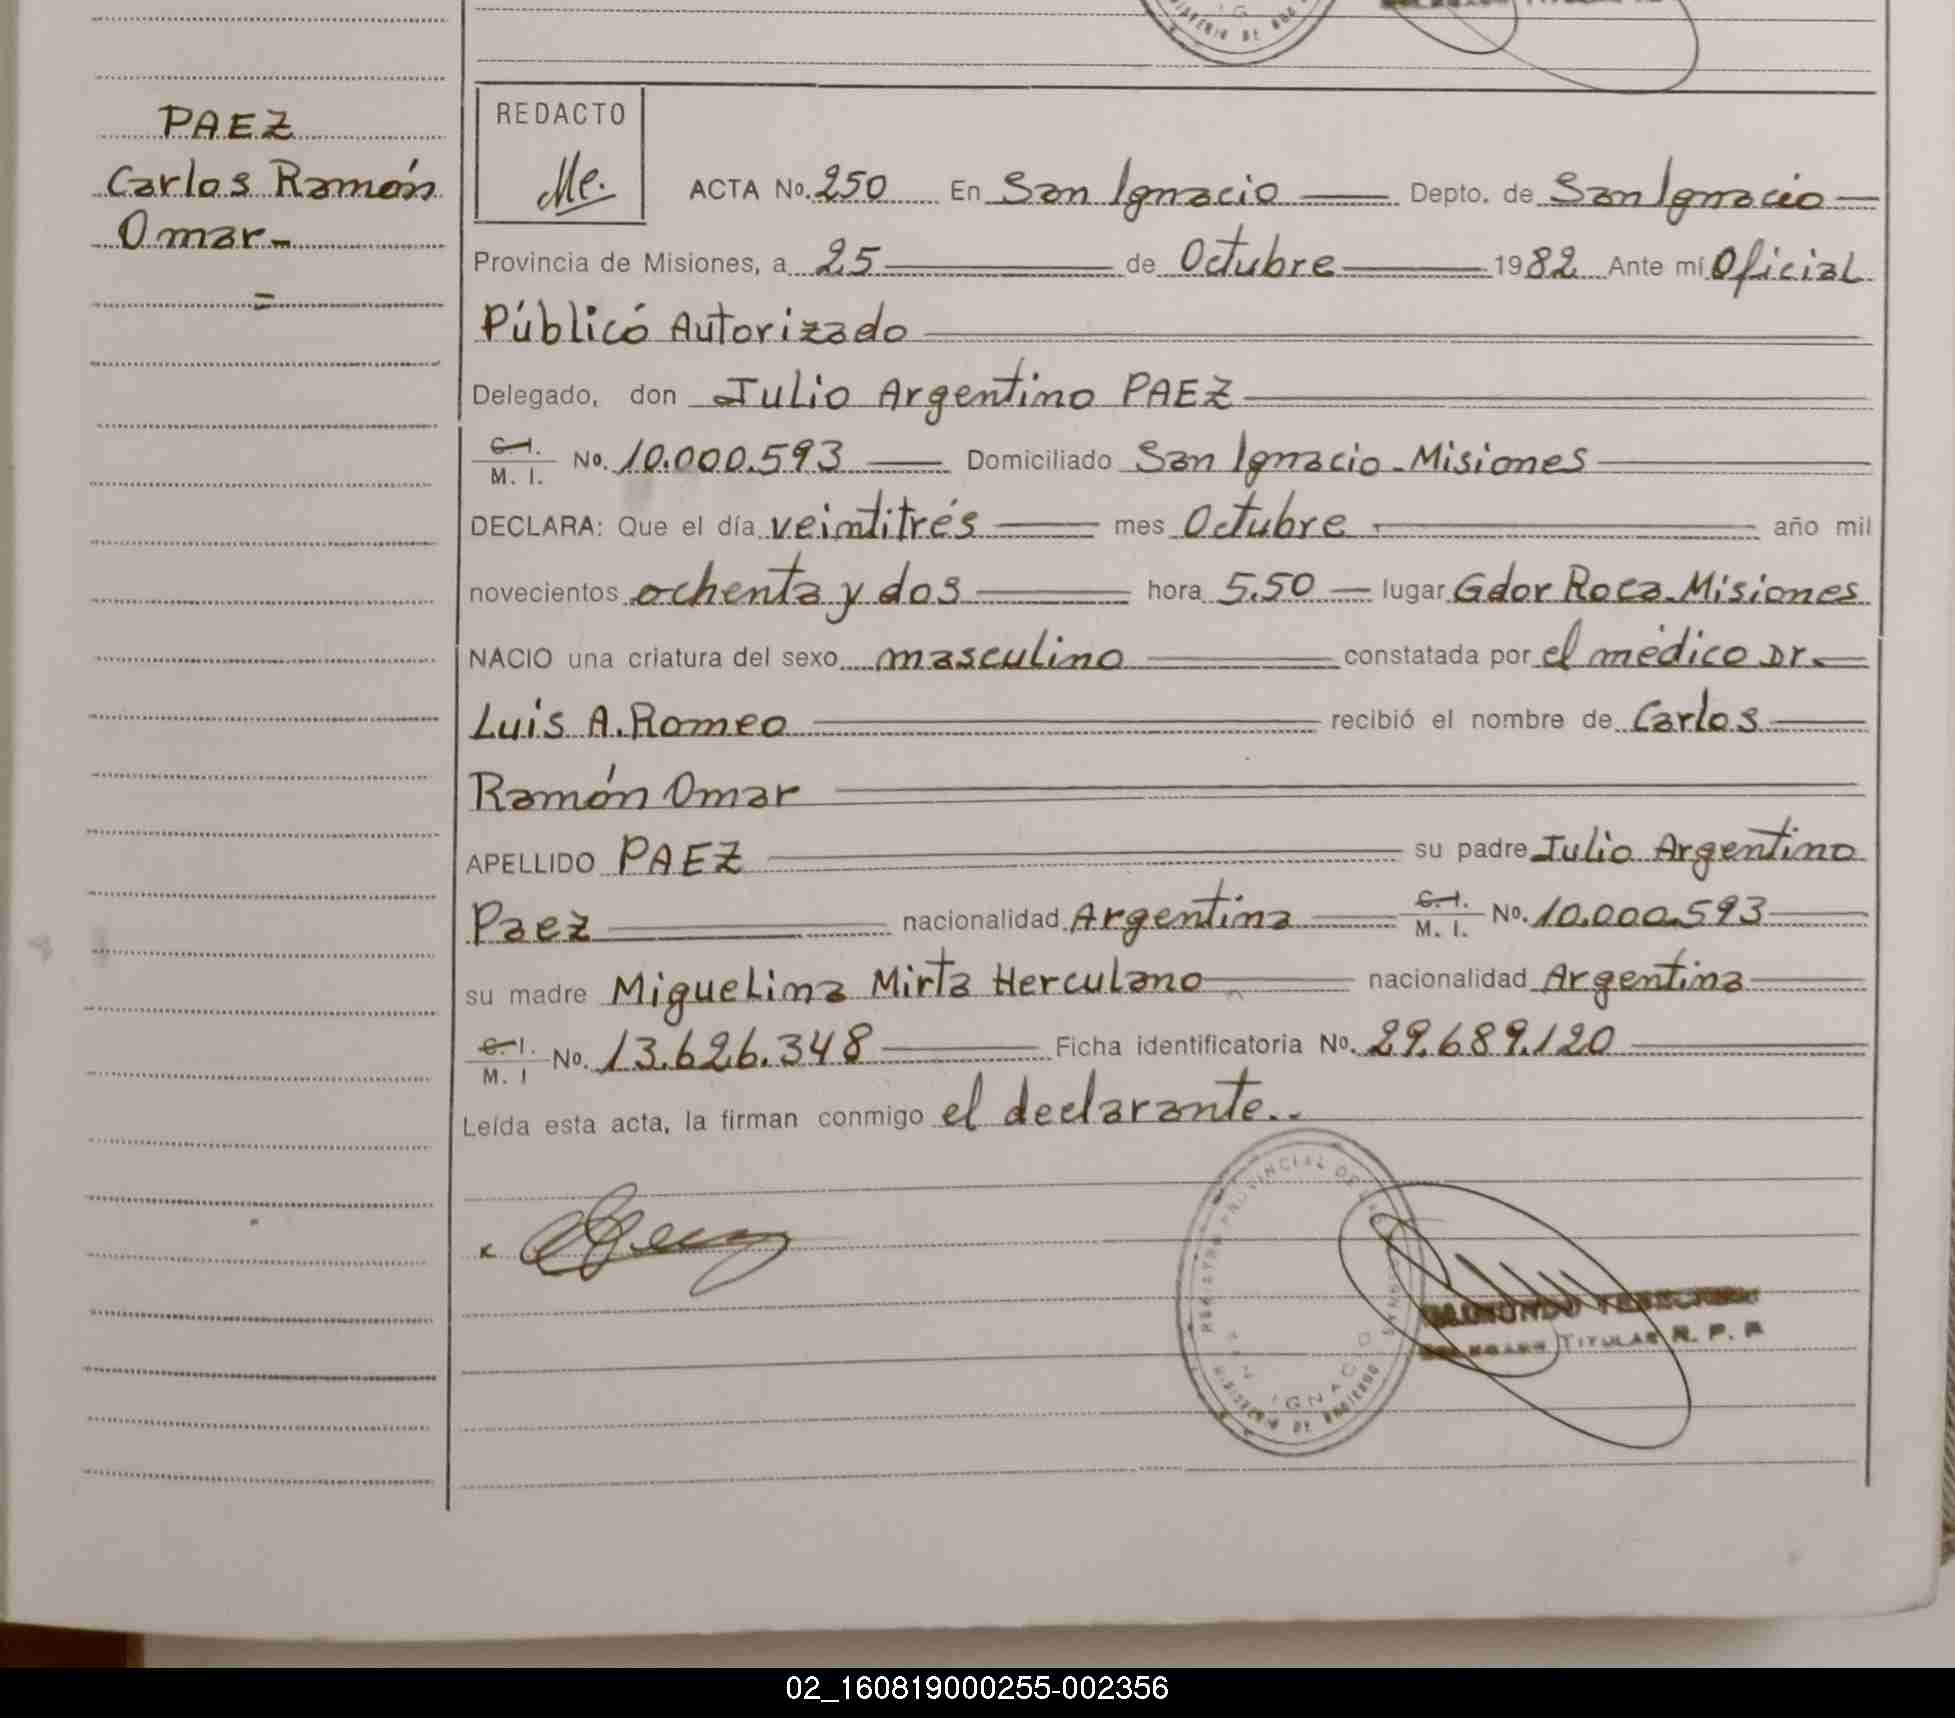 PAEZ
Carlos Ramón
Omar-
=
REDACTO
ACTA No. 250 En San Ignacio Depto. de San Ignacio
Provincia de Misiones, a 25 de Octubre 1982 Ante mí Oficial
Públicó Autorizado
Delegado, don Julio Argentino PAEZ
C.I. M. I. No. 10.000.593 Domiciliado San Ignacio-Misiones
DECLARA: Que el día veintitrés mes Octubre año mil
novecientos ochenta y dos hora 5.50 lugar Gdor Roca-Misiones
NACIO una criatura del sexo masculino constatada por el médico Dr.
Luis A. Romeo recibió el nombre de Carlos
Ramón Omar
APELLIDO PAEZ su padre Julio Argentino
Paez nacionalidad Argentina C.I. M. I. No. 10.000.593
su madre Miguelina Mirta Herculano nacionalidad Argentina
C.I. M. I No. 13.626.348 Ficha identificatoria No. 29.689.120
Leída esta acta, la firman conmigo el declarante..
REGISTRO PROVINCIAL DE
IGNACIO
MINISTERIO DE GOBIERNO
RAIMUNDO
TITULAR R. P. P
02_160819000255-002356